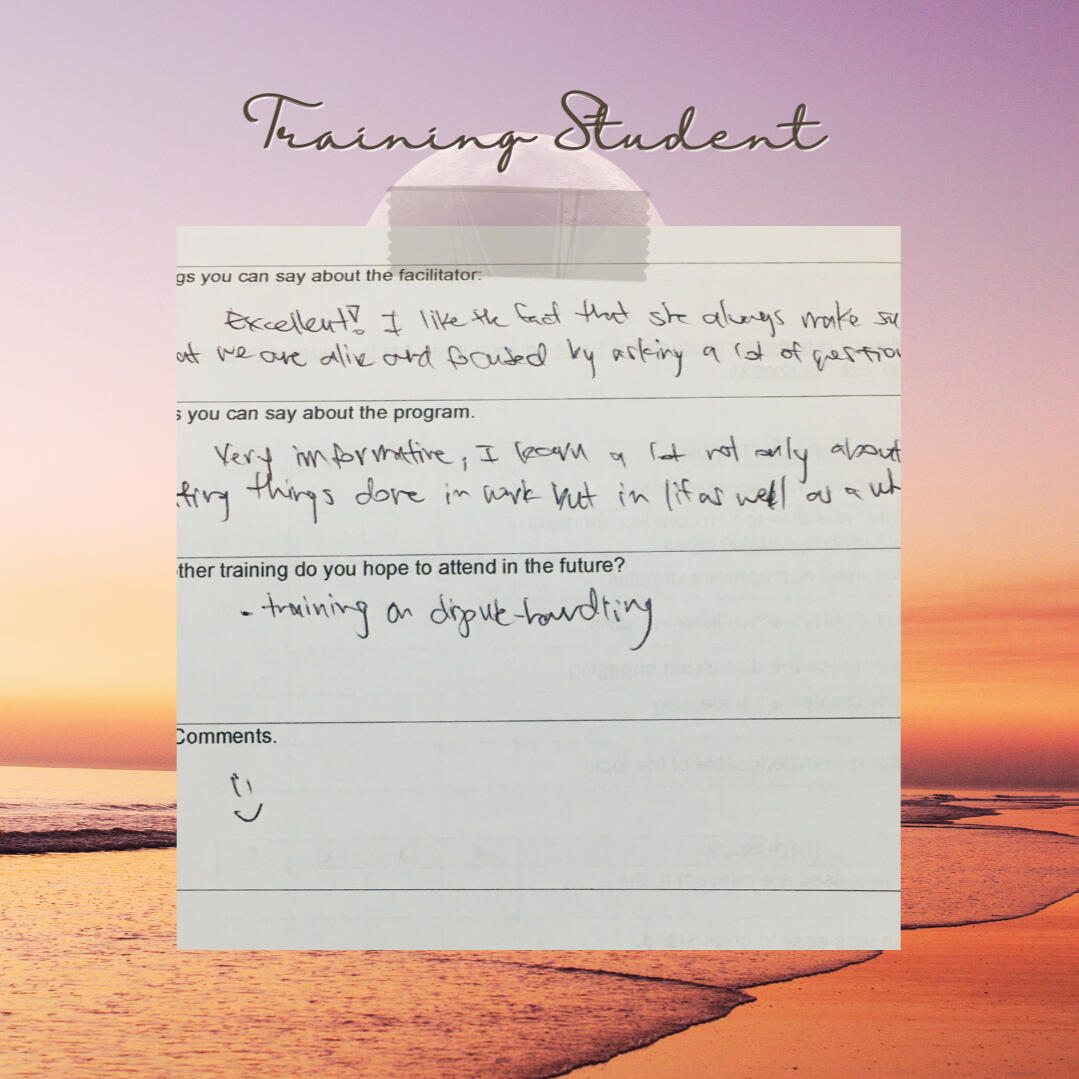 Training Student
gs you can say about the facilitator:
Excellent! I like the fact that she always make su
at we are alive and focused by asking a lot of question
s you can say about the program.
Very informative, I learn a lot not only about
things done in work but in life as well as a wh
ther training do you hope to attend in the future?
- training on dispute-handling
Comments.